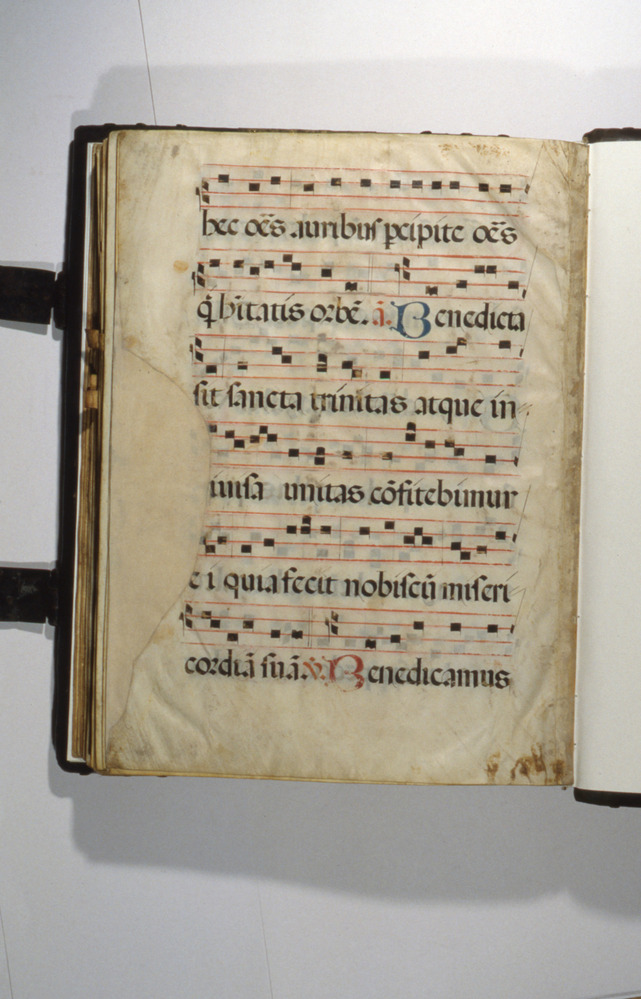 hec oēs auribus ꝑcipite oēs
q̄ hītatis orbē. ā. Benedicta
sit sancta trinitas atque in
iuisa unitas cōfitebimur
e i quia fecit nobiscū miseri
cordiā suā. ℣. Benedicamus